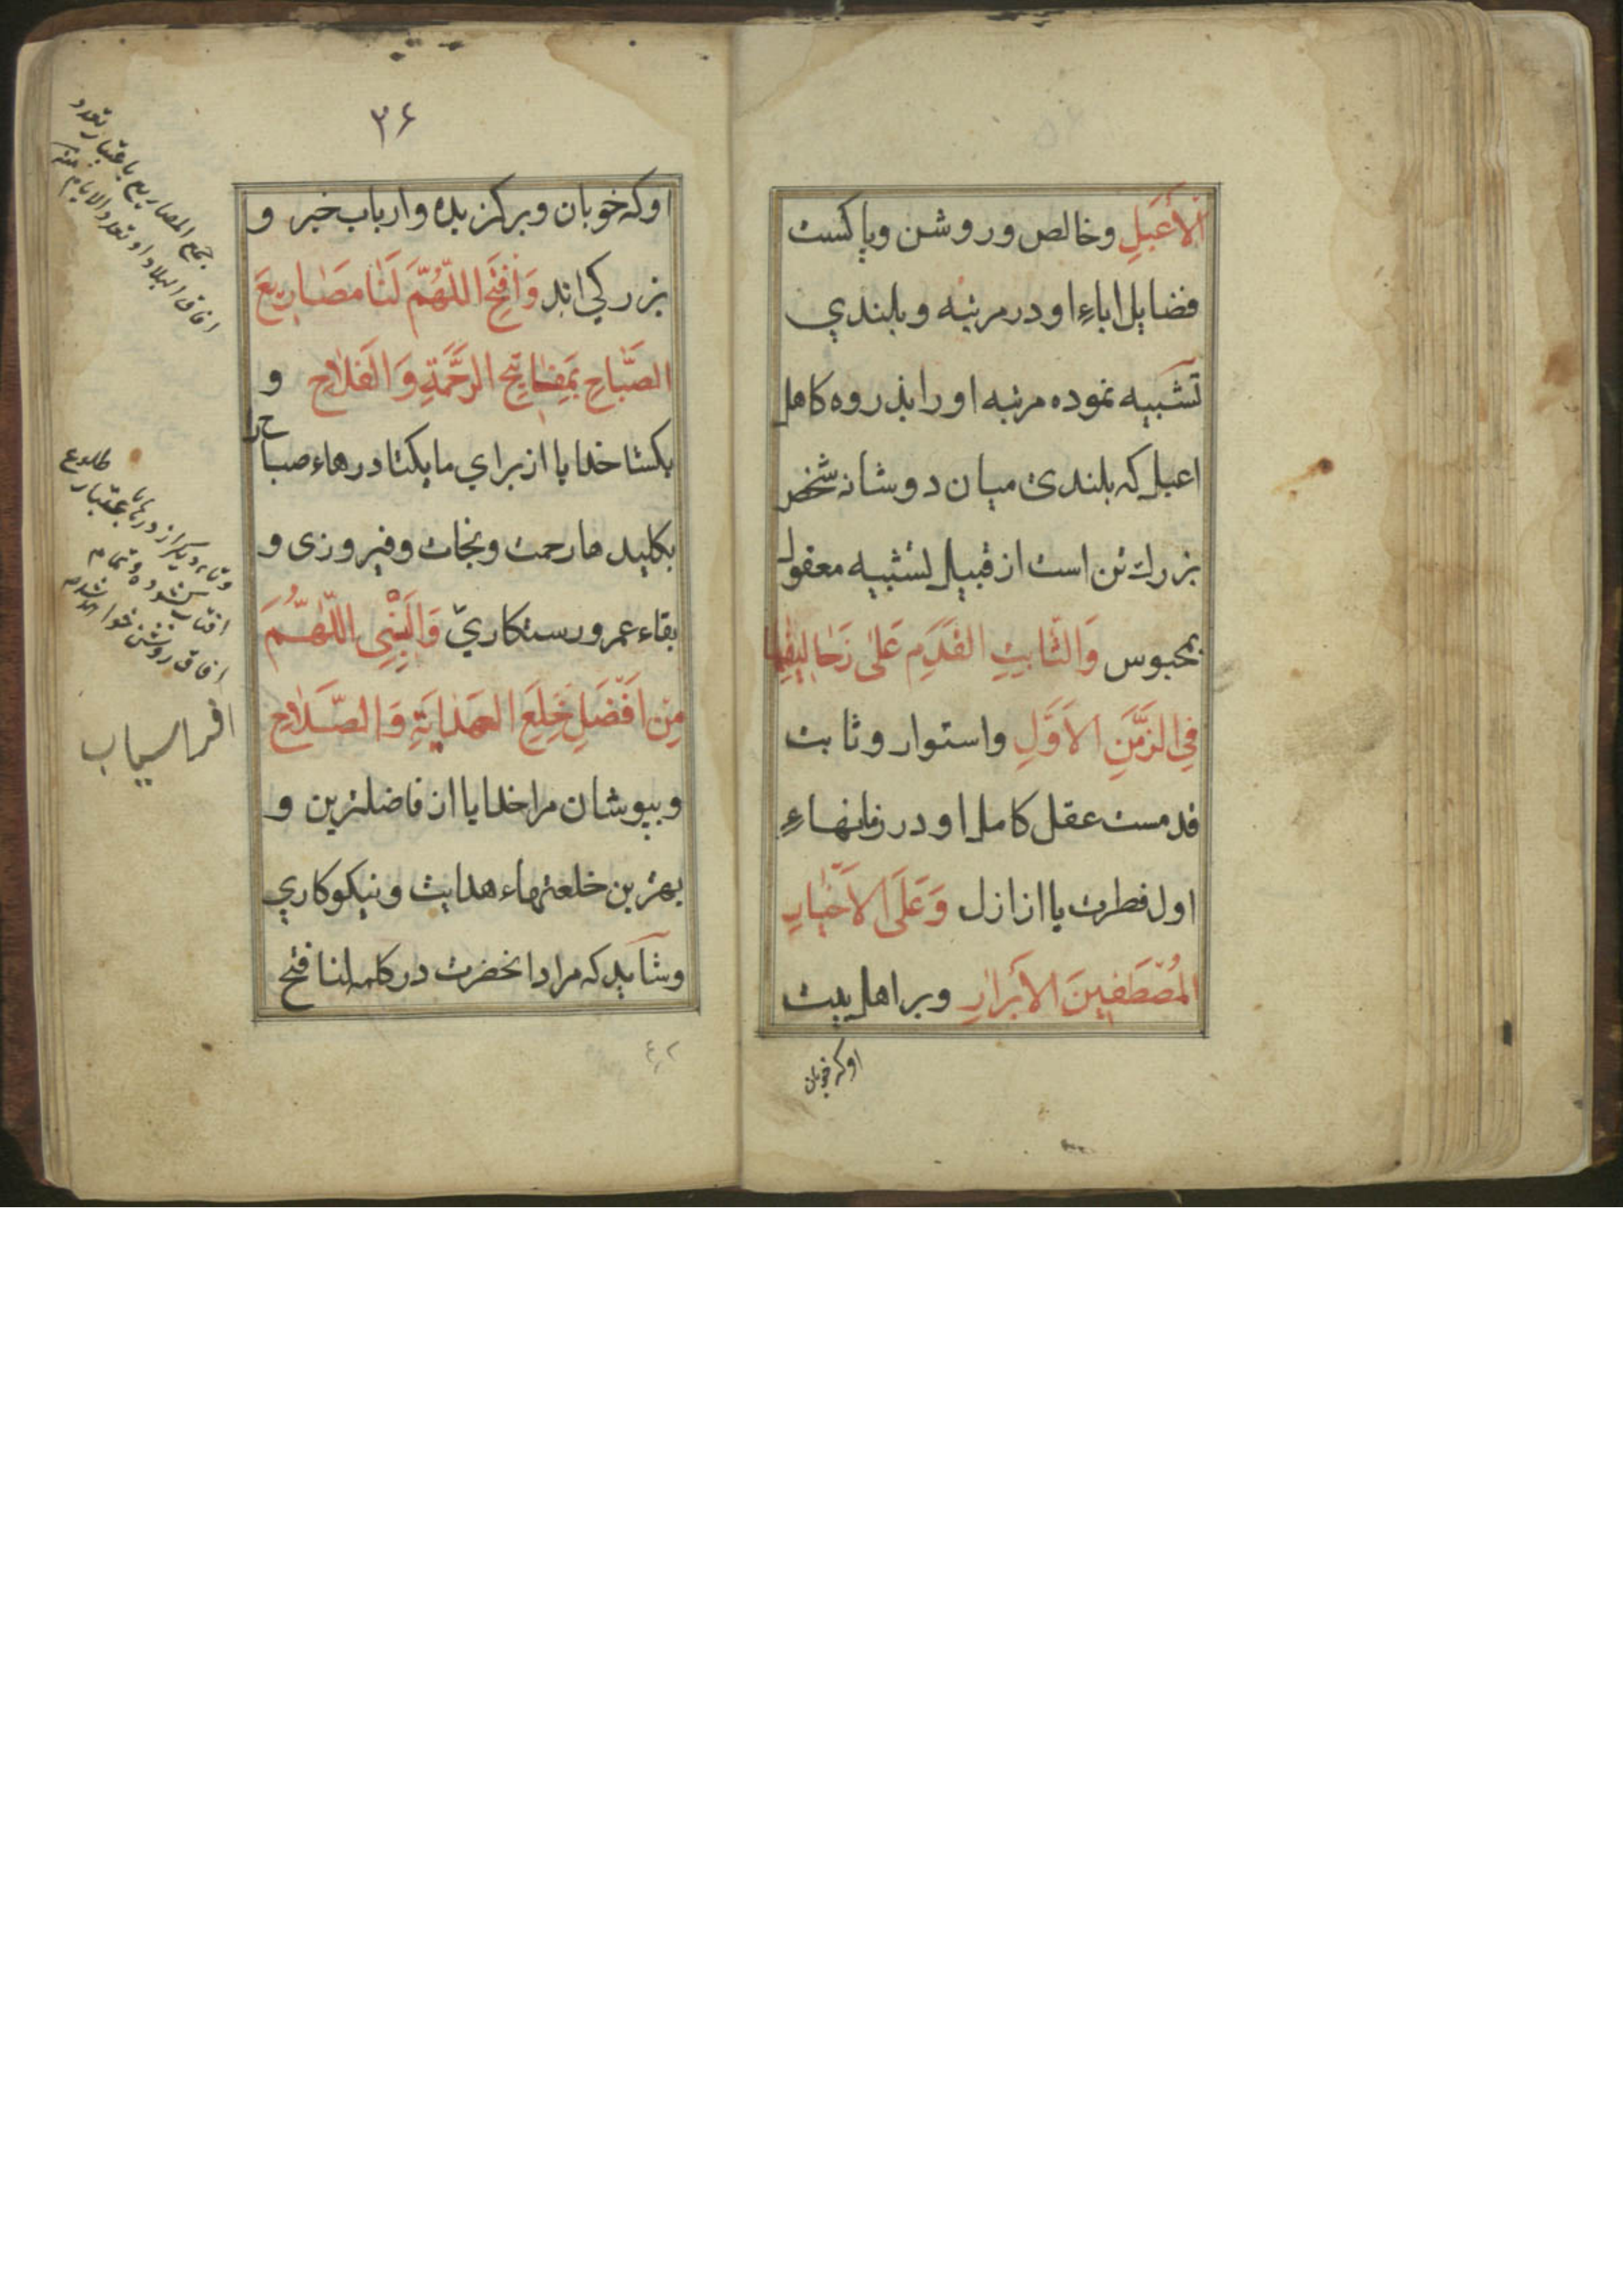 الأَعبَلِ وخالص وروشن وپاکست
فضایل اباءِ او در مرتبه و بلندی
تشبیه نموده مرتبه او را بذروه کاهل
اعبل که بلندی میان دو شانه شخص
بزرك تن است از قبیل تشبیه معقول
بمحبوس وَالثّابِتِ القَدَمِ عَلىٰ زَحٰاليفِهٰا
فِي الزَّمَنِ الاَوَّلِ واستوار و ثابت
قدمست عقل کامل او در زمانهاءِ
اول فطرت یا از ازل وَعَلَى الاَخْيٰارِ
المُصْطَفينَ الاَبْرٰارِ و بر اهل بیت
او که خوبان
۳۶
او که خوبان و برکزیده و ارباب خیر و
بزرکی اند وَافْتَحِ اللّهُمَّ لَنٰا مَصٰاريعَ
الصَّبٰاحِ بِمَفٰاتيحِ الرَّحْمَةِ وَالفَلاٰحِ و
بکشا خدایا از برای ما یکتا درهاء صباح را
بکلید هاء رحمت و نجات و فیروزی و
بقاء عمر و رستکاریّ وَاَلْبِسْنِى اللّٰهُمَّ
مِنْ اَفْضَلِ خِلَعِ الهِدٰايَةِ وَالصَّلاٰحِ
و بپوشان مرا خدایا از فاضلترین و
بهترین خلعتهاء هدایت و نیکوکاری
و شاید که مراد انحضرت در کلمه لنا فتح
جمع المصاریع باعتبار تعدد
افاق البلاد او تعدد الایام منه
طلوع
افتاب
افاق روشن خواهد شد
افراسیاب